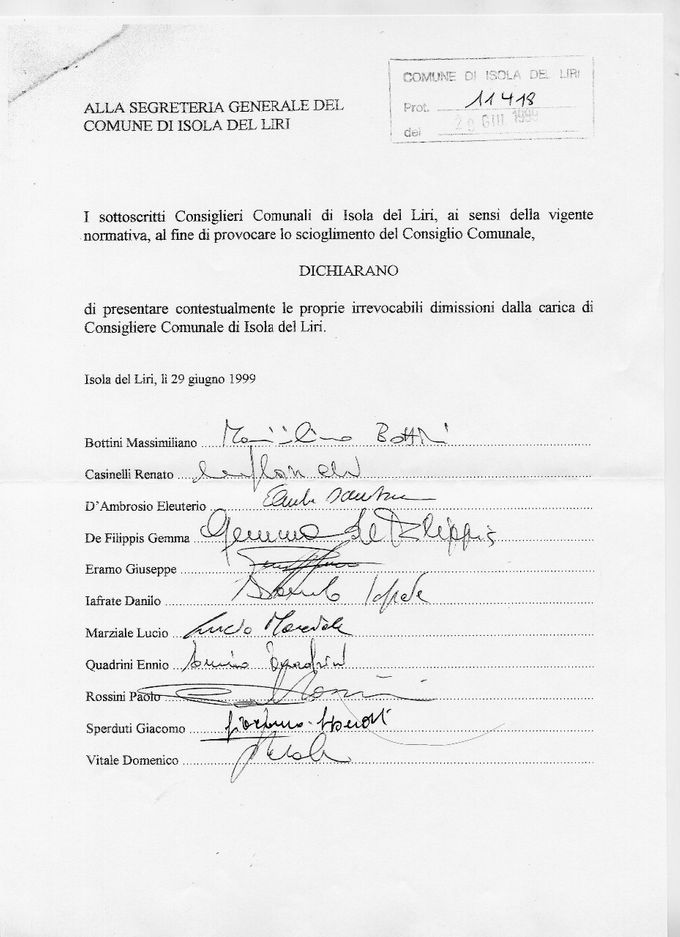 ALLA SEGRETERIA GENERALE DEL
COMUNE DI ISOLA DEL LIRI
COMUNE DI ISOLA DEL LIRI
Prot. 11418
del 29 GIU. 1999
I sottoscritti Consiglieri Comunali di Isola del Liri, ai sensi della vigente
normativa, al fine di provocare lo scioglimento del Consiglio Comunale,
DICHIARANO
di presentare contestualmente le proprie irrevocabili dimissioni dalla carica di
Consigliere Comunale di Isola del Liri.
Isola del Liri, lì 29 giugno 1999
Bottini Massimiliano
Casinelli Renato
D'Ambrosio Eleuterio
De Filippis Gemma Gemma De Filippis
Eramo Giuseppe
Iafrate Danilo Danilo Iafrate
Marziale Lucio Lucio Marziale
Quadrini Ennio
Rossini Paolo
Sperduti Giacomo
Vitale Domenico